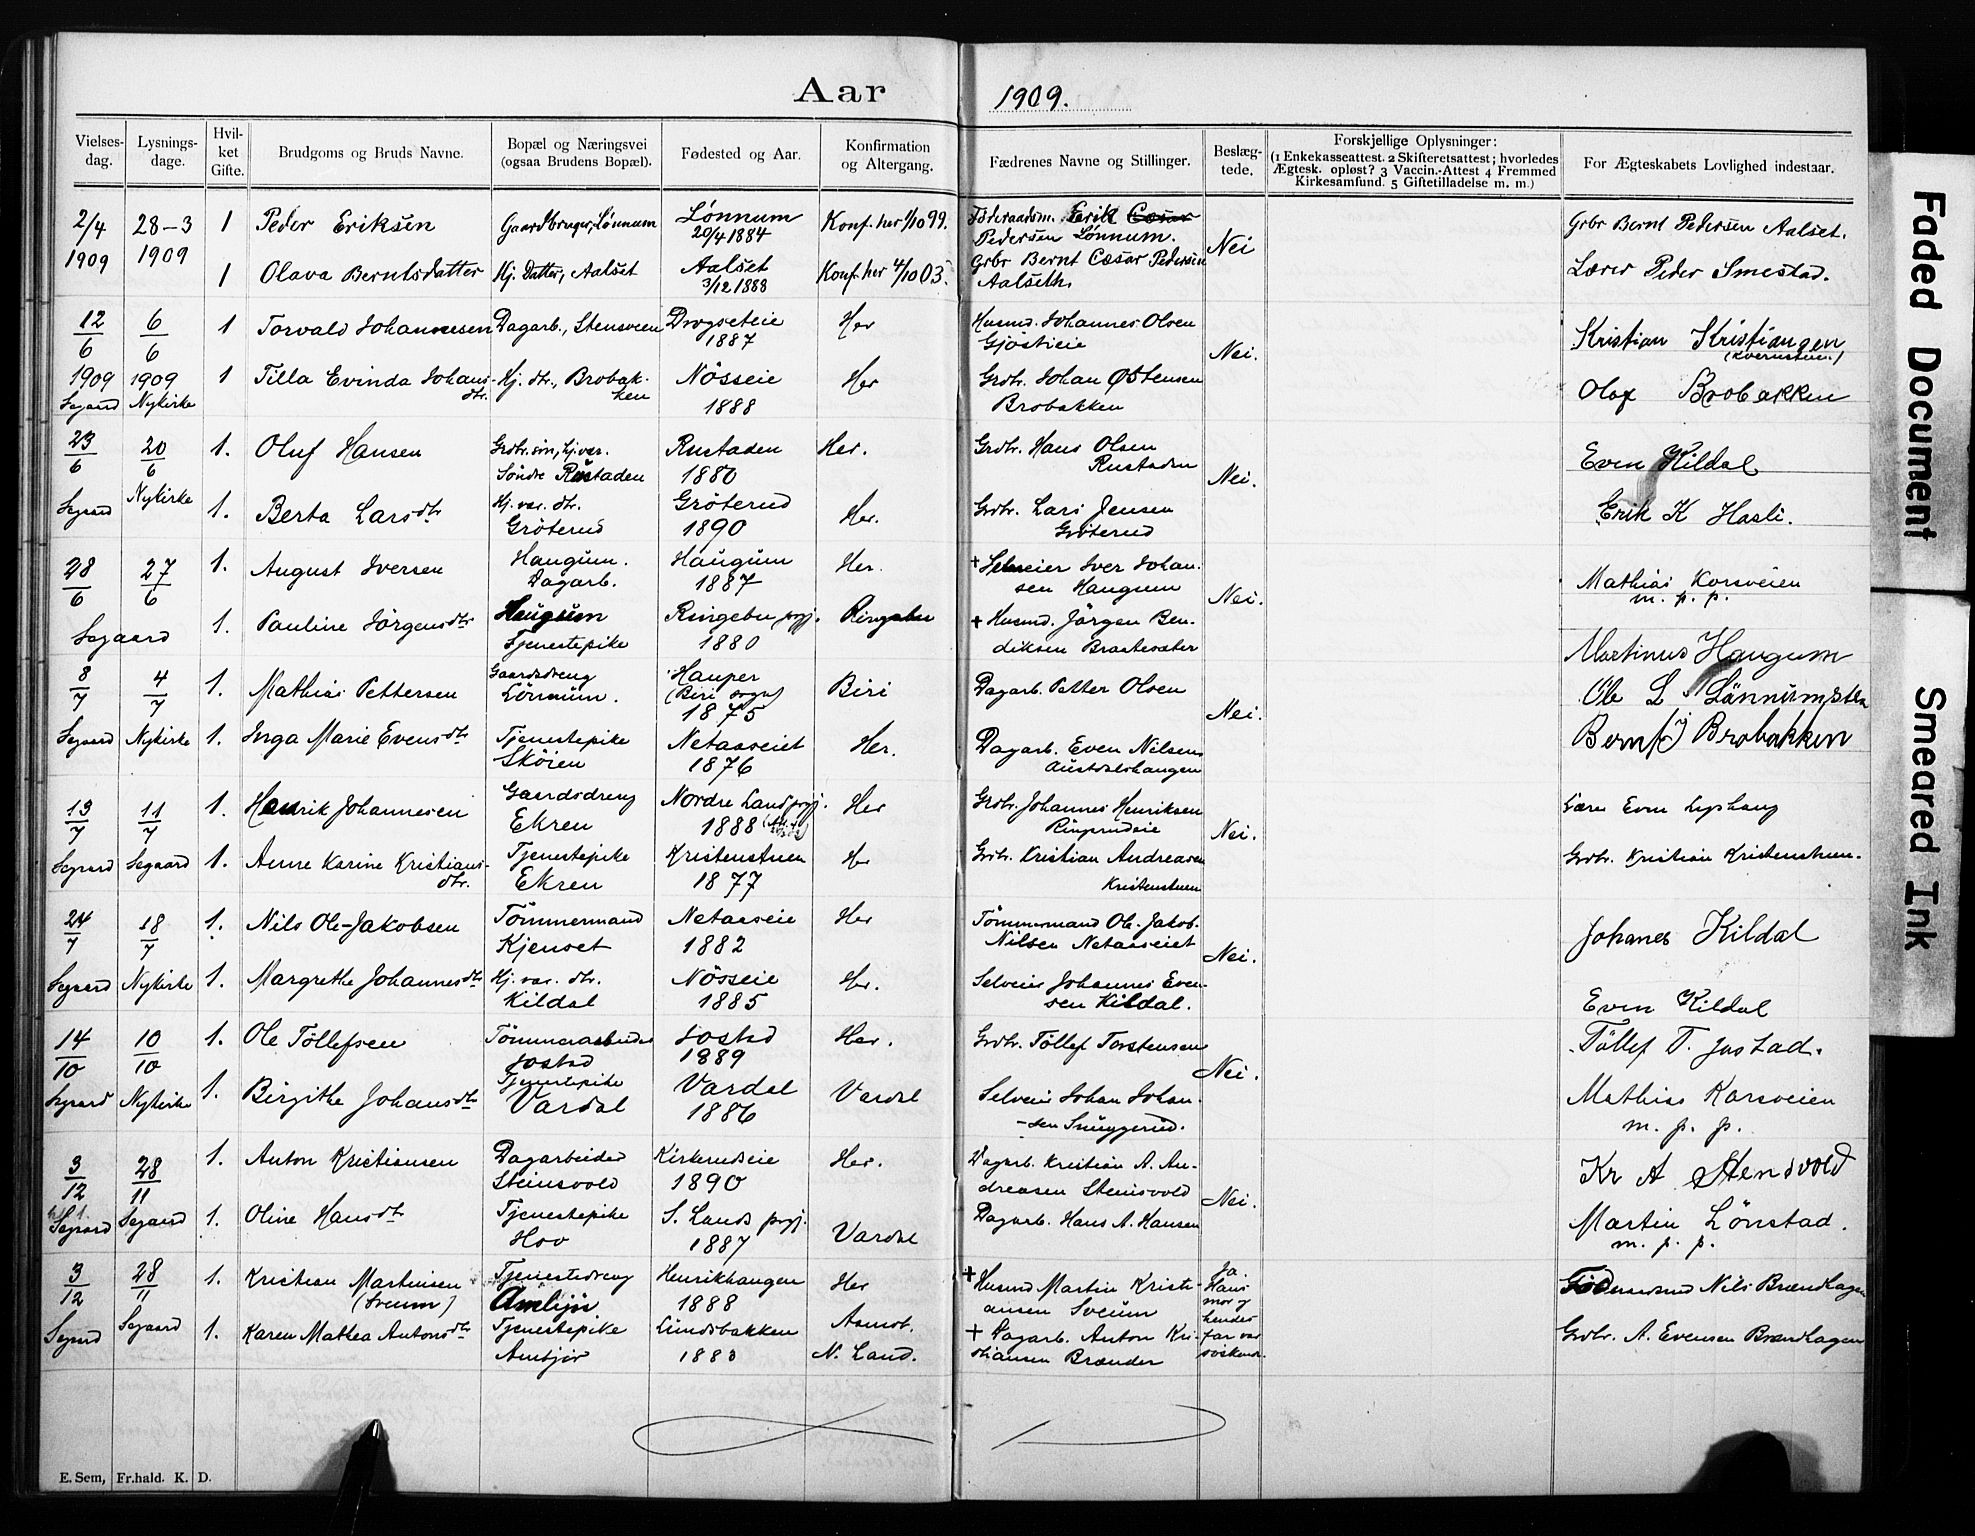 Aar 1909.
Vielses-dag. Lysnings-dage. Hvil-ket Gifte. Brudgoms og Bruds Navne. Bopæl og Næringsvei (ogsaa Brudens Bopæl). Fødested og Aar. Konfirmation og Altergang. Fædrenes Navne og Stillinger. Beslæg-tede. Forskjellige Oplysninger: (1 Enkekasseattest. 2 Skifteretsattest; hvorledes Ægtesk. opløst? 3 Vaccin.-Attest 4 Fremmed Kirkesamfund. 5 Giftetilladelse m. m.) For Ægteskabets Lovlighed indestaar.
2/4 1909 28-3 1909 1 Peder Eriksen Gaardbruger, Lönnum Lönnum 20/4 1884 Konf. her 1/10 99. Föderaadsm. Erik Cæsar Pedersen Lönnum. Nei Grbr Bernt Pedersen Aalset.
1 Olava Berntsdatter Hj. Datter, Aalset Aalset 3/12 1888 Konf. her 4/10 03. Grbr Bernt Cæsar Pedersen Aalseth. Lærer Peder Smestad.
12/6 1909 6/6 1909 1 Torvald Johannesen Dagarb., Stensveen 1887 Her Husmd. Johannes Olsen Nei. Kristian Kristiansen
Segaard Nykirke 1 Tilla Evinda Johansdtr. Hj. dtr., Brobakken Nösseie 1888 Her Grdbr. Johan Østensen Brobakken Olaf Brobakken
23/6 20/6 1. Oluf Hansen Söndre Rustaden Rustaden 1880 Her. Grdbr. Hans Olsen Rustaden Nei. Even Kildal
Segaard Nykirke 1. Berta Larsdtr Hj. vær. dtr. Gröterud Gröterud 1890 Her. Grdbr. Lars Jensen Gröterud Erik K Hasli.
28/6 27/6 1. August Iversen Haugum. Dagarb. Haugum 1887 Her. + Selveier Iver Johansen Haugum Nei. Mathias Korsveien m. p. p.
Segaard 1. Pauline Jörgensdtr Haugum Tjenestepike Ringebu prgj. 1880 Ringebu + Husmd. Jörgen Bendiksen Braatesæter Martinus Haugum
8/7 4/7 1. Mathias Pettersen Gaardsdreng Lönnum. (Biri sogn) 1875 Biri Dagarb. Petter Olsen Nei. Ole L Lönnumste
Segaard Nykirke 1. Inga Marie Evensdtr Tjenestepike Sköien Netaaseiet 1876 Her. Dagarb. Even Nilsen Austdalshaugen Bernt Brobakken
13/7 11/7 1. Henrik Johannesen Gaardsdreng Ekren Nordre Land prgj. 1888 Her Grdbr. Johannes Henriksen Ringrudeie Nei. Lærer Even
Segaard Segaard 1. Anne Karine Kristiansdtr. Tjenestepike Ekren Kristenstuen 1877 Her Grdbr. Kristian Andreasen Kristenstuen Grdbr. Kristian Kristenstuen.
24/7 18/7 1. Nils Ole-Jakobsen Tömmermand Kjenset Netaaseie 1882 Her Tömmermand Ole-Jakob Nilsen Netaaseiet Nei. Johanes Kildal
Segaard Nykirke 1. Margrethe Johannesdtr Hj. vær. dtr. Kildal Nösseie 1885 Her. Selveier Johannes Evensen Kildal. Even Kildal
14/10 10/10 1. Ole Töllefsen Tömmerarbeider Jostad Jostad 1889 Her. Grdbr. Töllef Torstensen Nei. Töllef T. Jostad.
Segaard Nykirke 1. Birgithe Johansdtr Tjenestepike Vardal Vardal 1886 Vardal Selveier Johan Johansen Snuggerud. Mathias Korsveien m. p. p.
3/12 28/11 1. Anton Kristiansen Dagarbeider Steinsvold Kirkerudseie 1890 Her. Dagarb. Kristian A. Andreasen Steinsvold Nei. Kr A Stensvold
Segaard Segaard 1. Oline Hansdtr Tjenestepike Hov S. Lands prgj. 1887 Vardal Dagarb. Hans A. Hansen Martin Lönstad. m. p. p.
3/12 28/11 1. Kristian Martinsen (Sveum) Tjenestedreng Ambjör Henrikhaugen 1888 Her + Husmd Martin Kristiansen Sveum Ja. Hans mor og hendes far var söskende. Föderaadsmd Nils Brændhagen
Segaard Segaard 1. Karen Mathea Antonsdtr Tjenestepike Ambjör Lundsbakken 1883 N. Land. + Dagarb. Anton Kristiansen Brænder Grdbr. A. Evensen Brændhagen
E. Sem, Fr.hald. K. D.
Faded Document
Smeared Ink